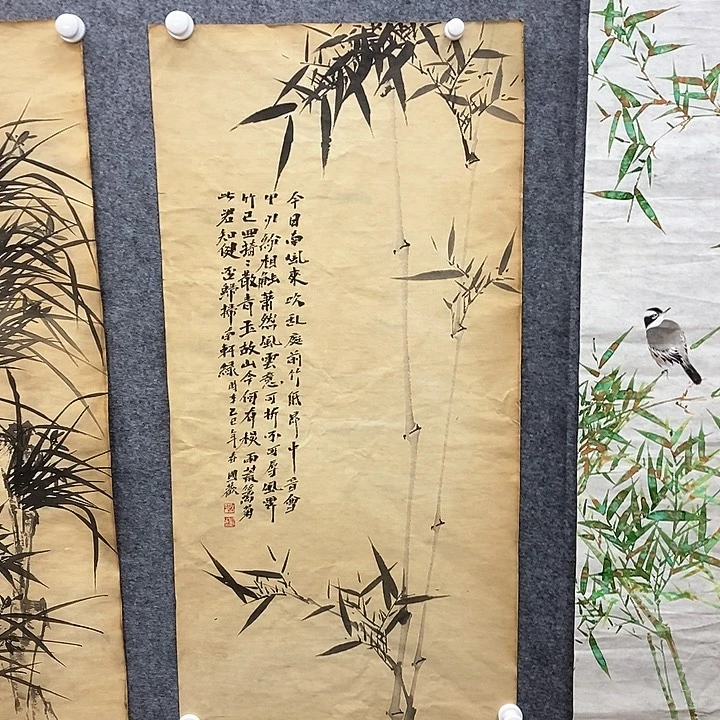 今日南風來吹乱庭前竹低昂中音會
甲刃紛相触蕭然風雲意可折不可辱風霽
竹已回猗々散青玉故山今何有秋雨荒篱菊
此君知健否歸掃南軒緑 乙巳年春